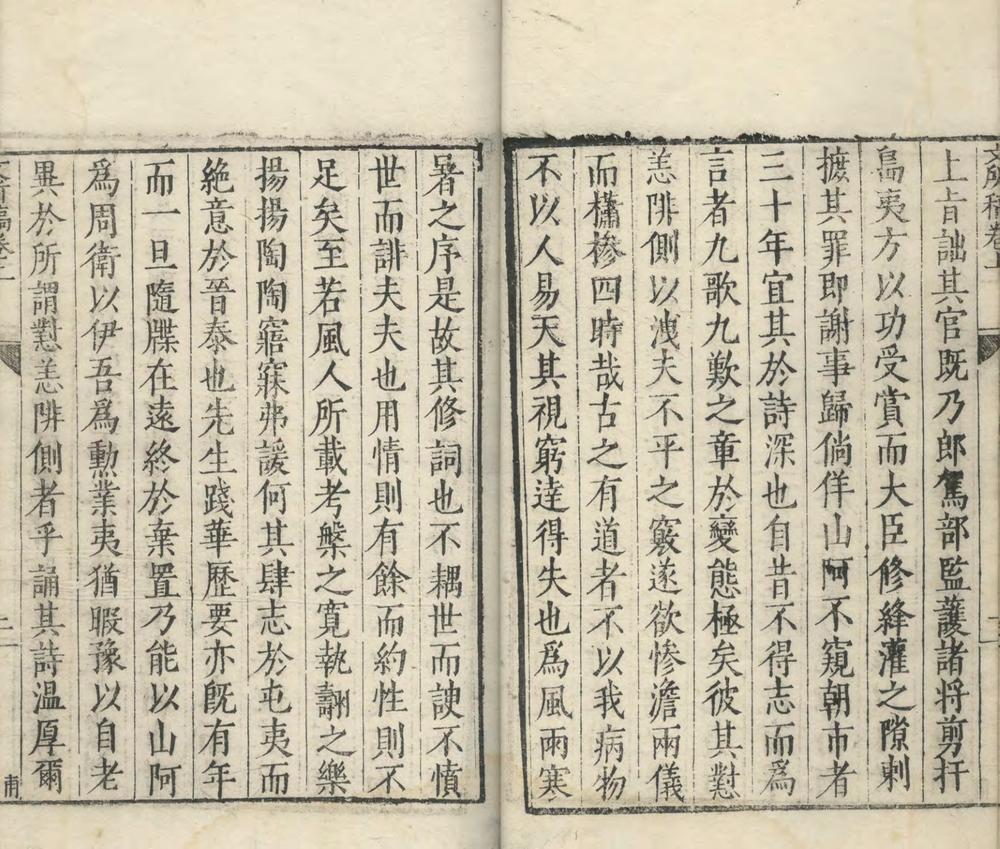 上旨詘其官既乃郎駕部監護諸将剪扞
島夷方以功受賞而大臣修絳灌之隙剌
摭其罪即謝事歸倘佯山阿不窺朝市者
三十年宜其於詩深也自昔不得志而為
言者九歌九歎之章於變態極矣彼其懟
恙陫側以洩夫不平之竅遂欲慘澹兩儀
而櫹槮四時哉古之有道者不以我病物
不以人易天其視窮達得失也爲風雨寒
暑之序是故其修詞也不耦世而諛不憤
世而誹夫夫也用情則有餘而約性則不
足矣至若風人所載考槃之寛執翿之樂
揚揚陶陶寤寐弗諼何其肆志於屯夷而
絶意於晉泰也先生踐華歷要亦既有年
而一旦隨牒在遠終於棄置乃能以山阿
爲周衛以伊吾爲勳業夷猶暇豫以自老
異於所謂懟恙陫側者乎誦其詩温厚爾